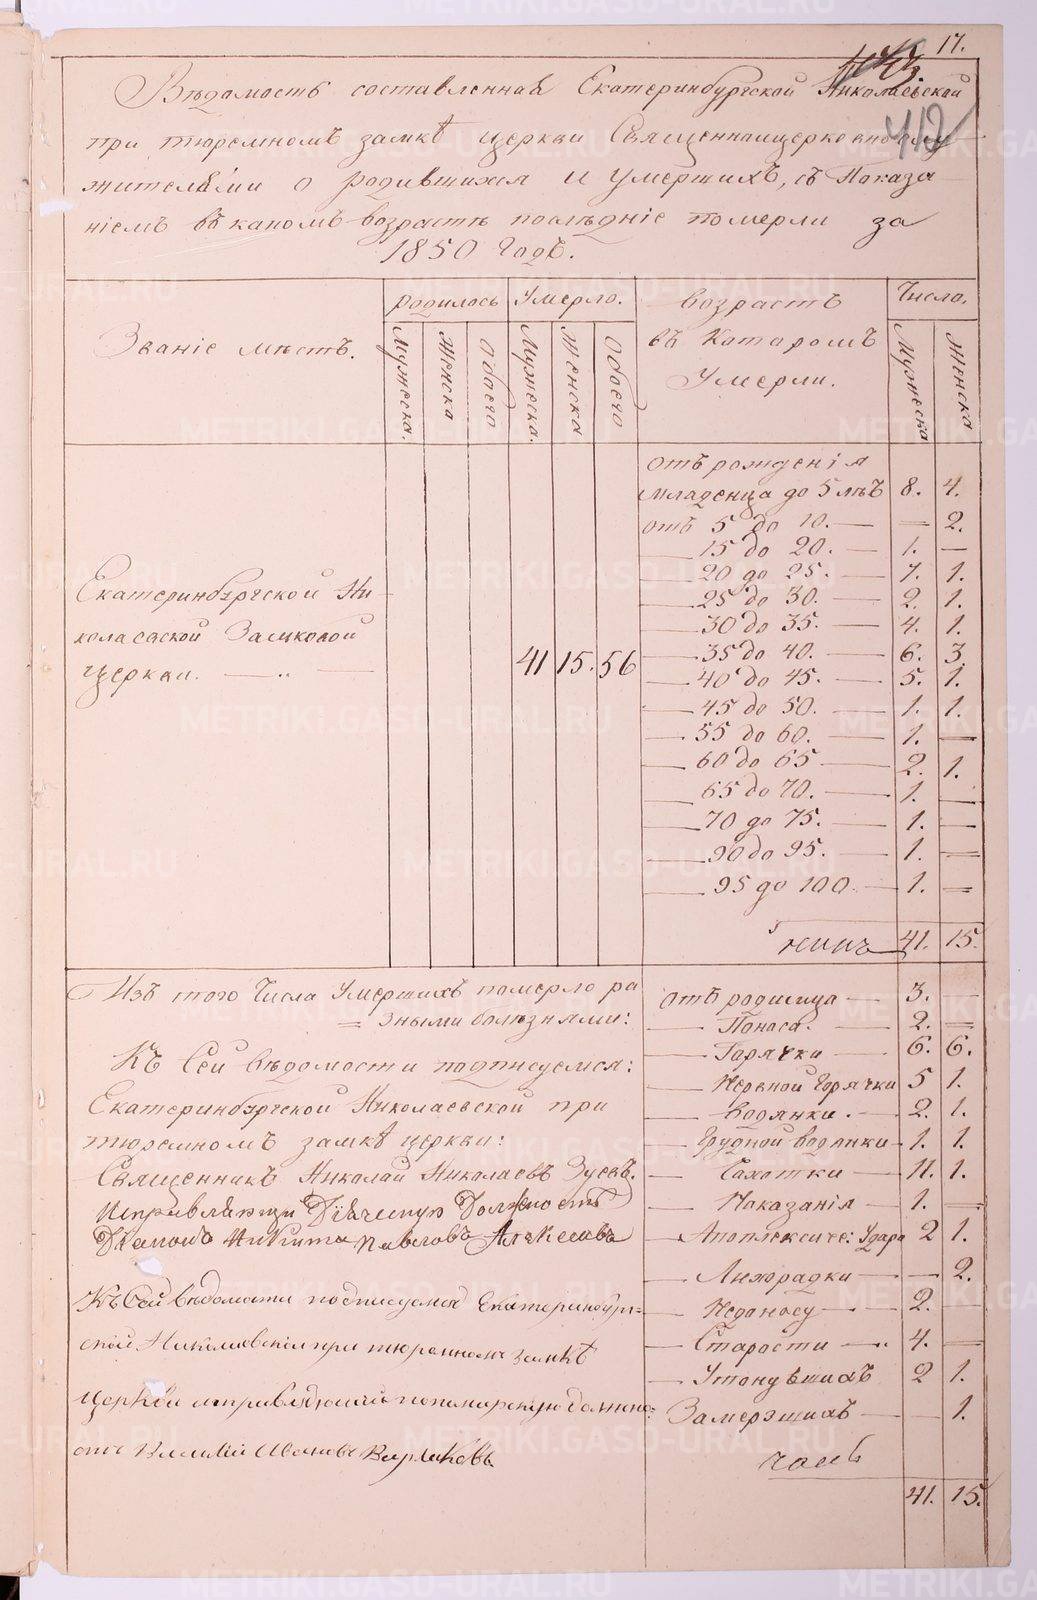 17.
412
Вѣдомость составленная Екатеринбургской Николаевской
при тюремномъ замкѣ церкви Священноицерковнослу
жителями о родившихся и умершихъ, съ показа
ніемъ въ какомъ возрастѣ послѣдніе померли за
1850 годъ.
Званіе мѣстъ.
родилось
Умерло.
возрастъ
въ Катаромъ
Умерли.
Число.
Мужеска.
Женска
Обоего
Мужеска.
Женска
Обоего
Мужеска
Женска
Екатеринбургской Ни
колаевской Замковой
церкви.
41 15. 56
отъ рожденія
младенца до 5 лѣтъ 8. 4.
отъ 5 до 10. — — 2.
— 15 до 20. — 1. —
— 20 до 25. — 7. 1.
— 25 до 30. — 2. 1.
— 30 до 35. — 4. 1.
— 35 до 40. — 6. 3
— 40 до 45. — 5. 1.
— 45 до 50. — 1. 1.
— 55 до 60. — 1. —
— 60 до 65 — 2. 1.
— 65 до 70. — 1. —
— 70 до 75. — 1. —
— 90 до 95. — 1. —
— 95 до 100 — 1. —
41. 15.
Изъ того Числа Умершихъ померло ра
= зными болѣзнями:
отъ родимца — 3. —
— Поноса. 2. —
— Горячки — 6. 6.
— Нервной Горячки 5 1.
— Водянки. — 2. 1.
— Грудной водянки — 1. 1.
— Чахотки — 11. 1.
— Наказанія — 1. —
— Апоплексиче: Удара 2 1.
— Лихорадки — — 2.
— Недоносу — 2. —
— Старости — 4. —
— Утонувшихъ 2 1.
Замерзшихъ — — 1.
41. 15.
Къ Сей вѣдомости подписуемся:
Екатеринбургской Николаевской при
тюремномъ замкѣ церкви:
Священникъ Николай Николаевъ Зуевъ.
Исправляющи Дьяческую Должность
Дьяконъ Никита Павловъ Алексеевъ
Къ Сей вѣдомости подписуемся Екатеринбург=
ской Николаевской при тюремномъ замкѣ
Церкви исправляющій пономарскую должно=
сть Василій Ивановъ